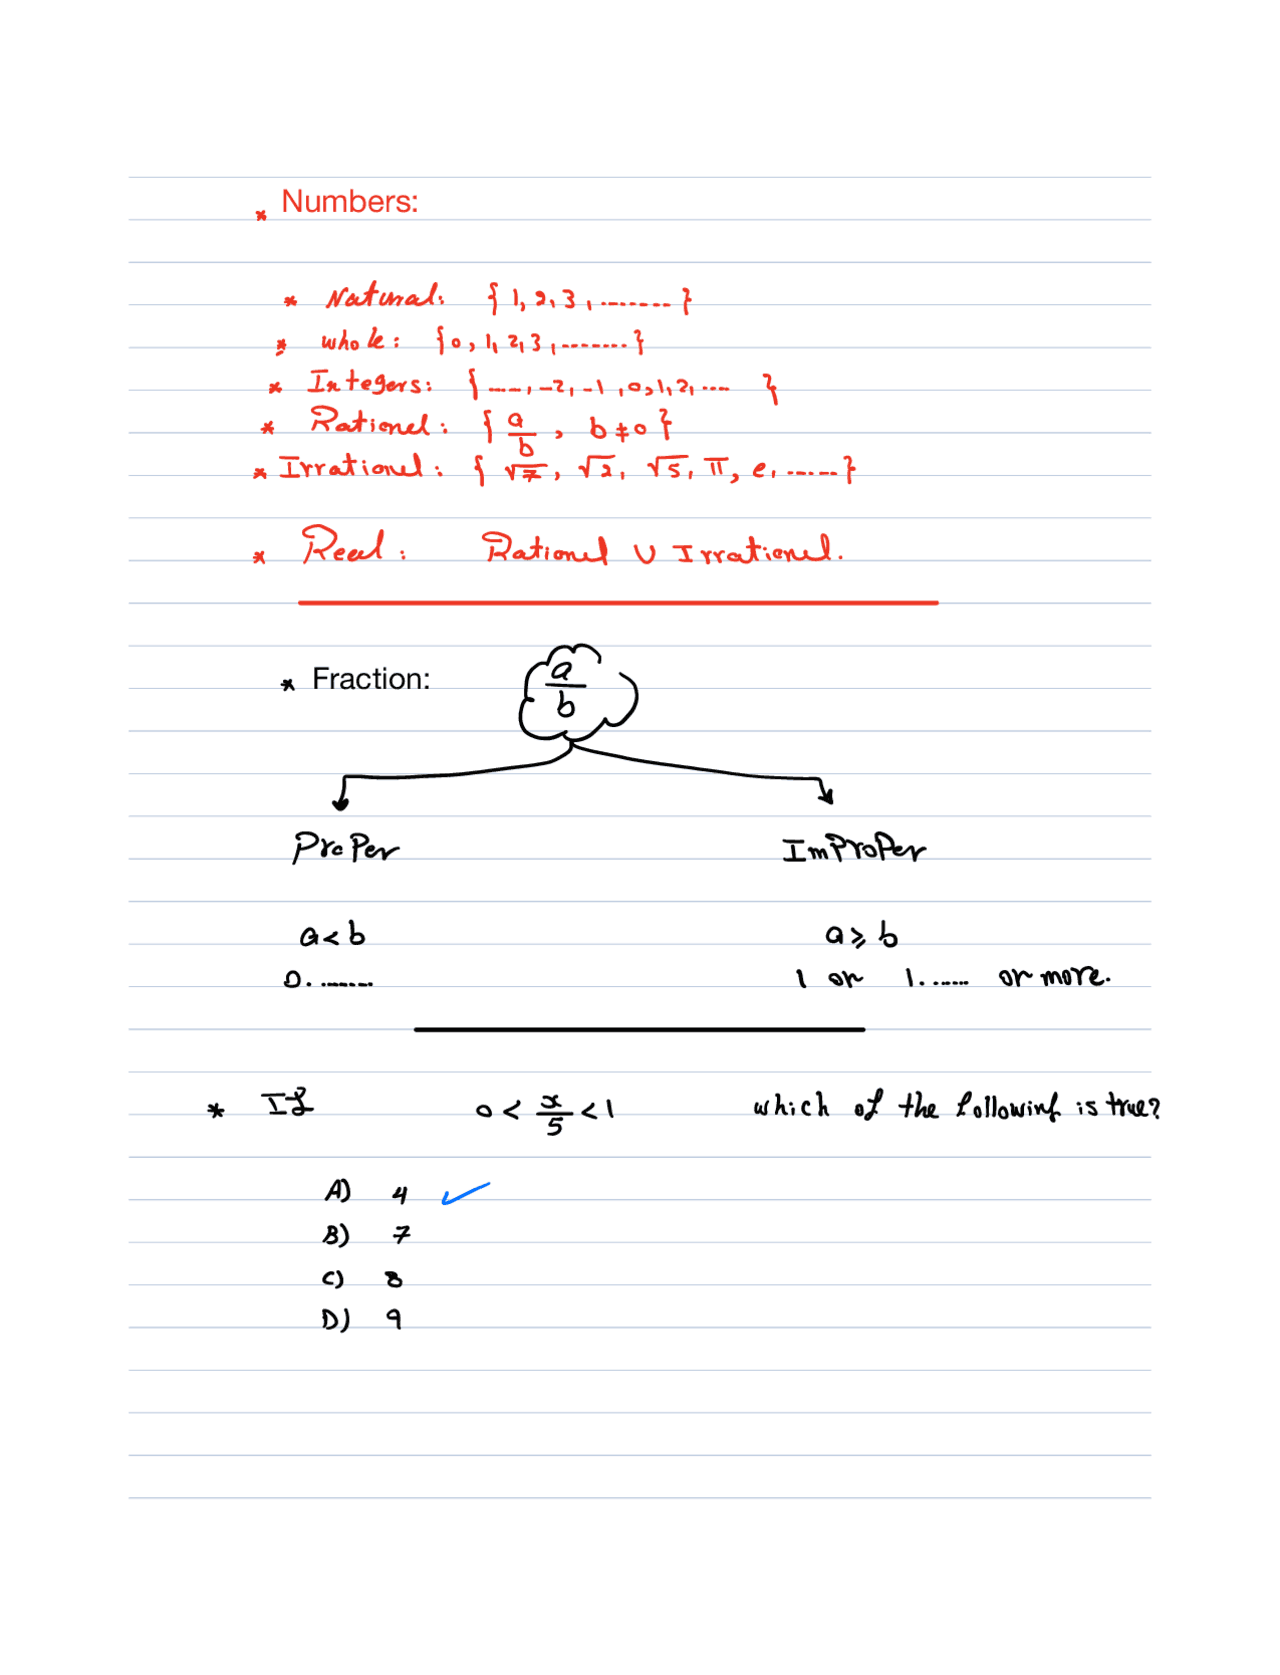 * Numbers:
* Natural: { 1, 2, 3, ....... }
* whole: { 0, 1, 2, 3, ....... }
* Integers: { ...., -2, -1, 0, 1, 2, .... }
* Rational: { a/b, b ≠ 0 }
* Irrational: { √7, √2, √5, π, e, ...... }
* Real: Rational ∪ Irrational.
* Fraction: a/b
Proper ImProPer
a < b a ⩾ b
0. ....... 1 or 1. ..... or more.
* If 0 < x/5 < 1 which of the following is true?
A) 4 ✓
B) 7
C) 8
D) 9